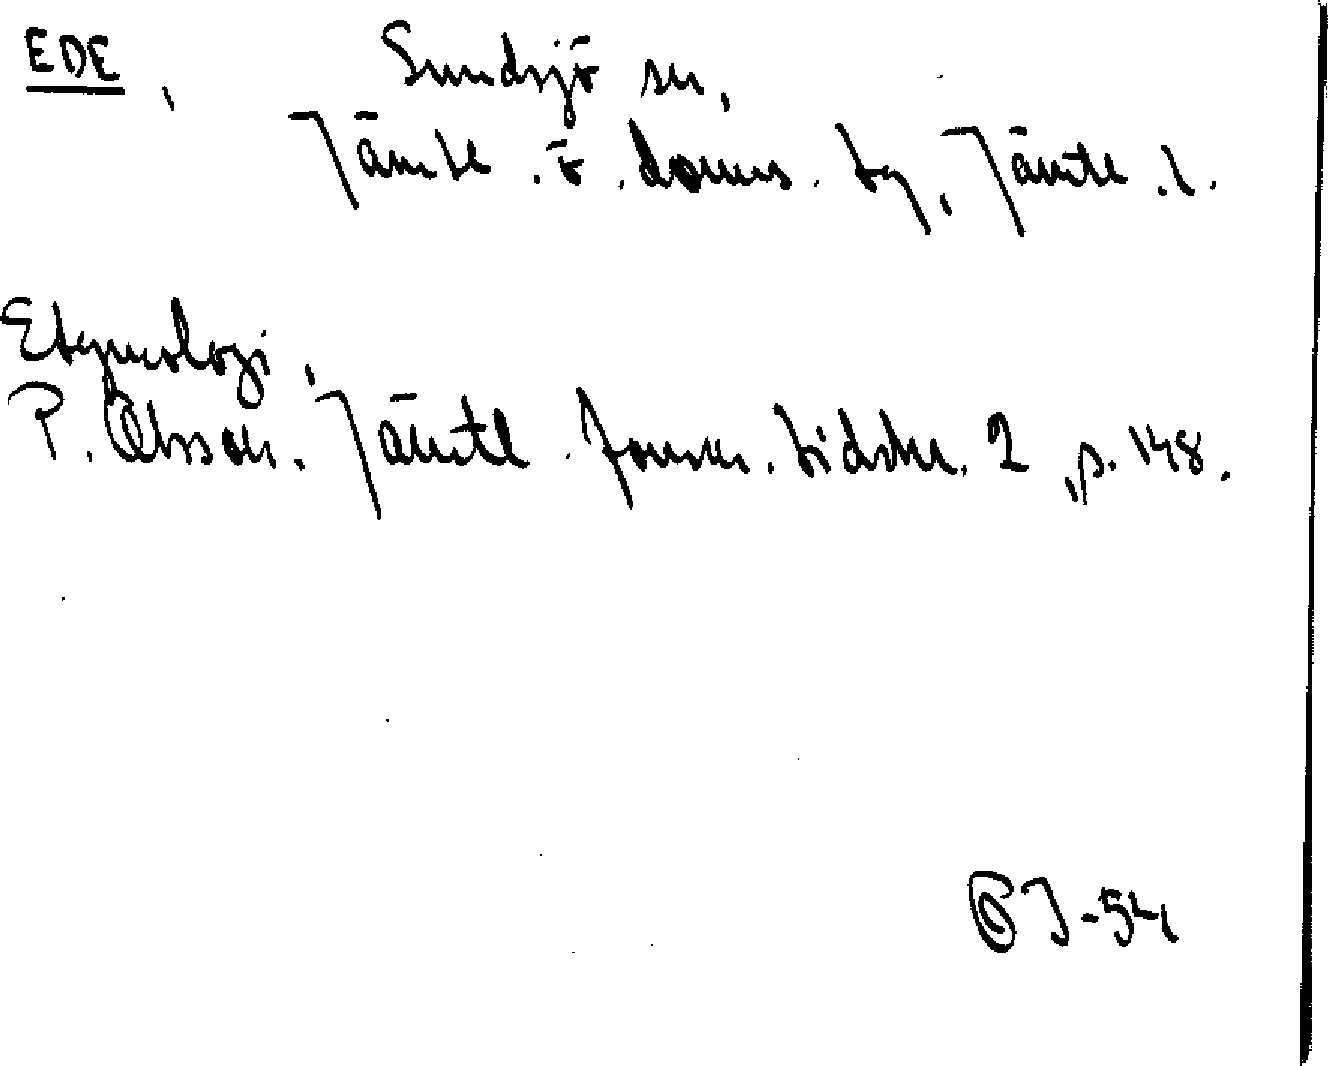 EDE, Sundsjö sn,
Jämtl. ö. doms. tg, Jämtl. l.
Etymologi,
P. Olsson. Jämtl. fornm. tidskr. 2, p. 148.
J-54